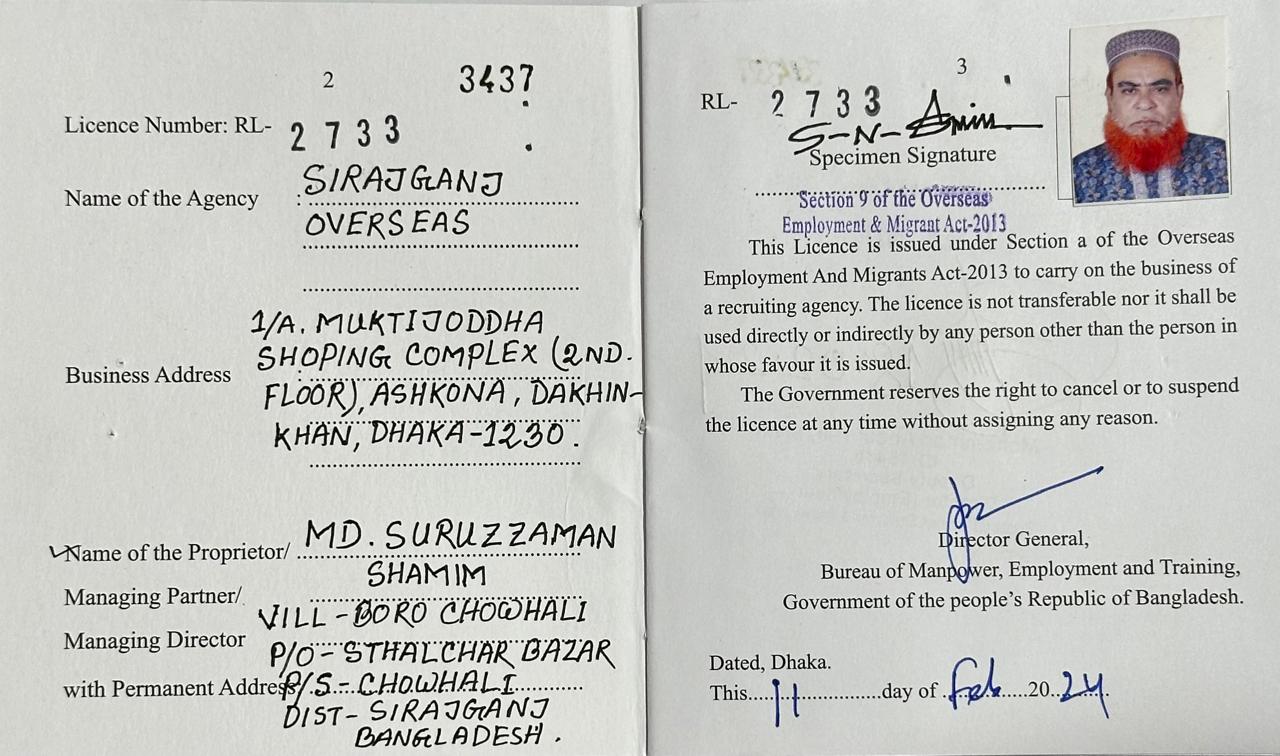 2
3437
Licence Number: RL- 2733
Name of the Agency : SIRAJGANJ
OVERSEAS
Business Address
1/A. MUKTIJODDHA
SHOPING COMPLEX (2ND.
FLOOR), ASHKONA, DAKHIN-
KHAN, DHAKA-1230.
Name of the Proprietor/ MD. SURUZZAMAN
SHAMIM
Managing Partner/
VILL-BORO CHOWHALI
Managing Director
P/O-STHALCHAR BAZAR
with Permanent Address P/S.-CHOWHALI
DIST- SIRAJGANJ
BANGLADESH.
3
RL- 2733
S-N-Amin
Specimen Signature
Section 9 of the Overseas
Employment & Migrant Act-2013
This Licence is issued under Section a of the Overseas
Employment And Migrants Act-2013 to carry on the business of
a recruiting agency. The licence is not transferable nor it shall be
used directly or indirectly by any person other than the person in
whose favour it is issued.
The Government reserves the right to cancel or to suspend
the licence at any time without assigning any reason.
Director General,
Bureau of Manpower, Employment and Training,
Government of the people's Republic of Bangladesh.
Dated, Dhaka.
This....11....................day of ..Feb......20..24.